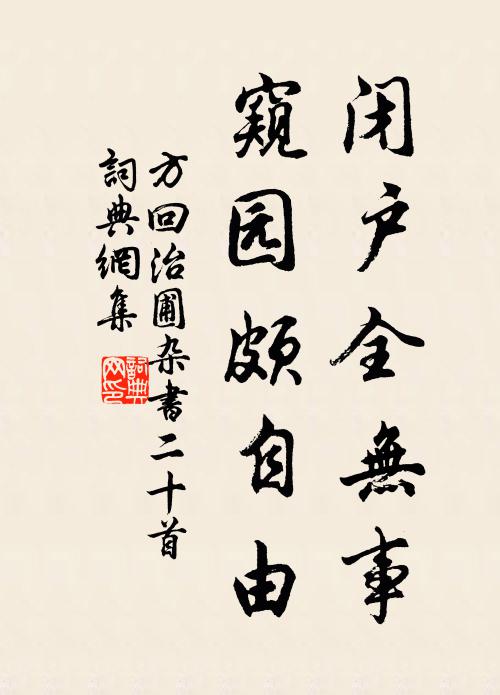 闭户全無事
窺园頗自由
方回治圃杂書二十首
詞典網集
詞典
网印